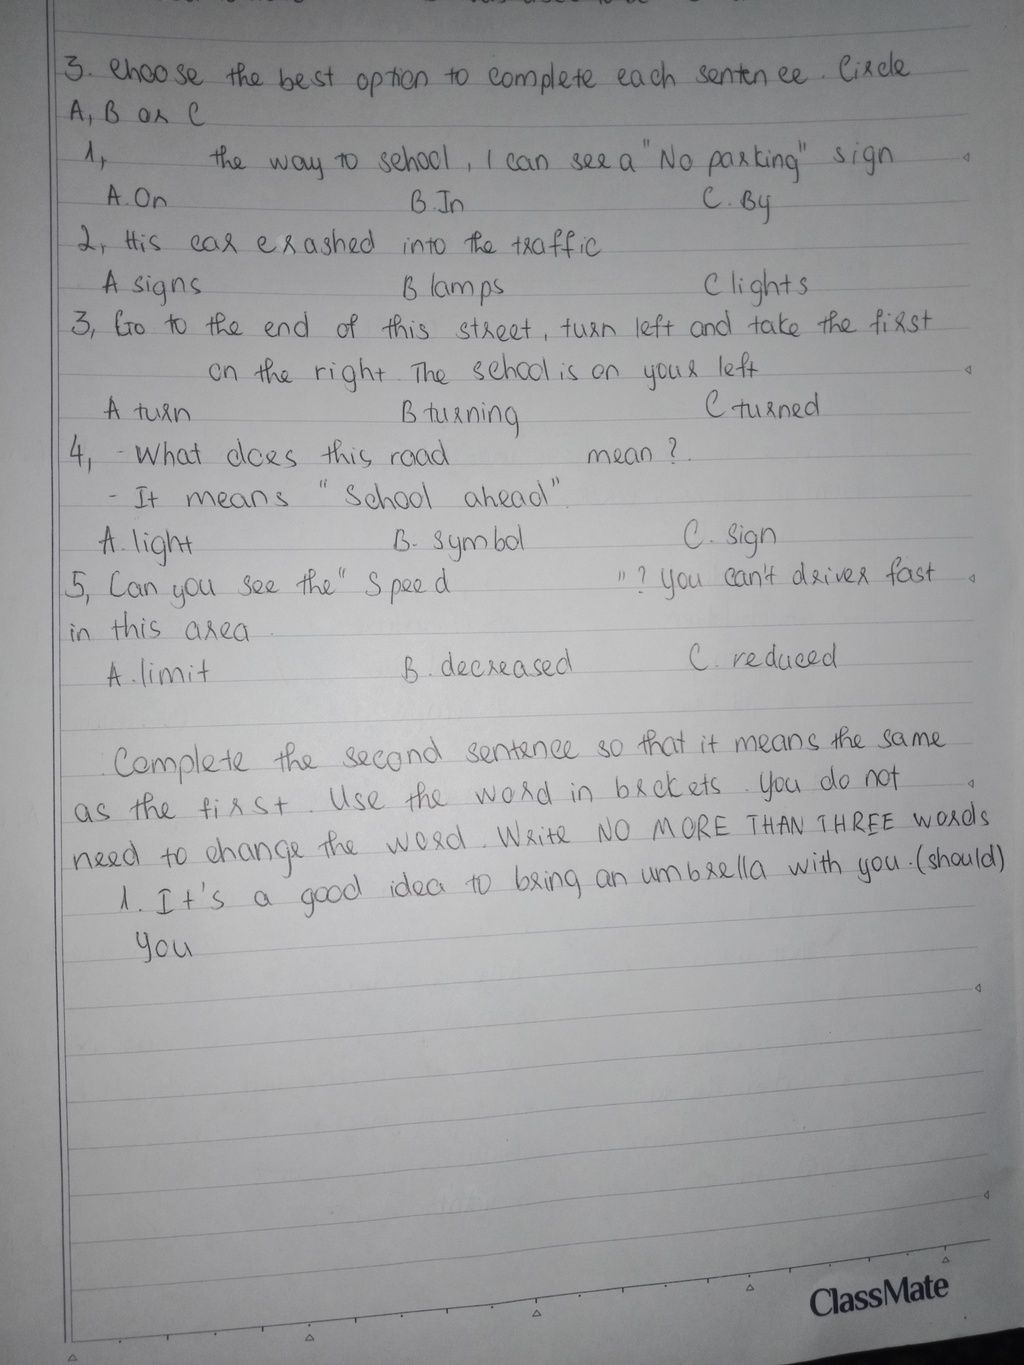 3. Choose the best option to complete each sentence. Circle
A, B or C
1, the way to school, I can see a "No parking" sign
A. On B. In C. By
2, His car crashed into the traffic
A signs B lamps C lights
3, Go to the end of this street, turn left and take the first
on the right. The school is on your left
A turn B turning C turned
4, - What does this road mean?
- It means "School ahead".
A. light B. symbol C. sign
5, Can you see the "Speed "? You can't driver fast
in this area.
A. limit B. decreased C. reduced
Complete the second sentence so that it means the same
as the first. Use the word in brckets. You do not
need to change the word. Write NO MORE THAN THREE words
1. It's a good idea to bring an umbrella with you. (should)
You
ClassMate